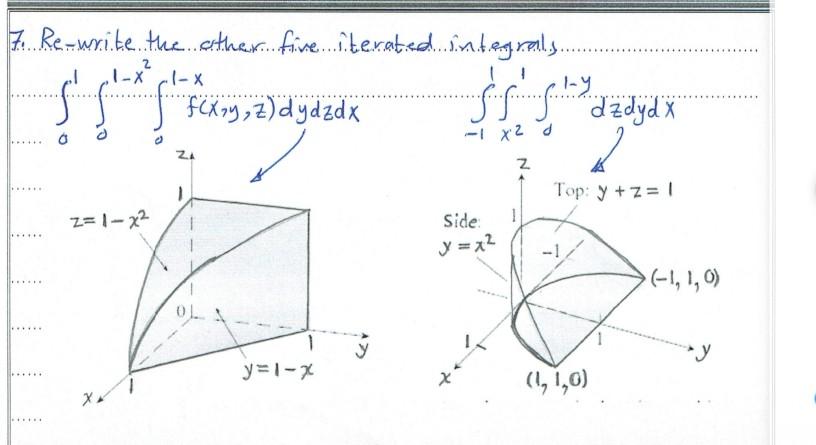 7. Re-write the other five iterated integrals
∫₀¹ ∫₀^{1-x²} ∫₀^{1-x} f(x,y,z) dy dz dx
∫₋₁¹ ∫_{x²}^1 ∫₀^{1-y} dz dy dx
z
1
z = 1 - x²
0
1
y
y = 1 - x
1
x
z
Top: y + z = 1
1
Side:
y = x²
-1
(-1, 1, 0)
1
1
y
x
(1, 1, 0)